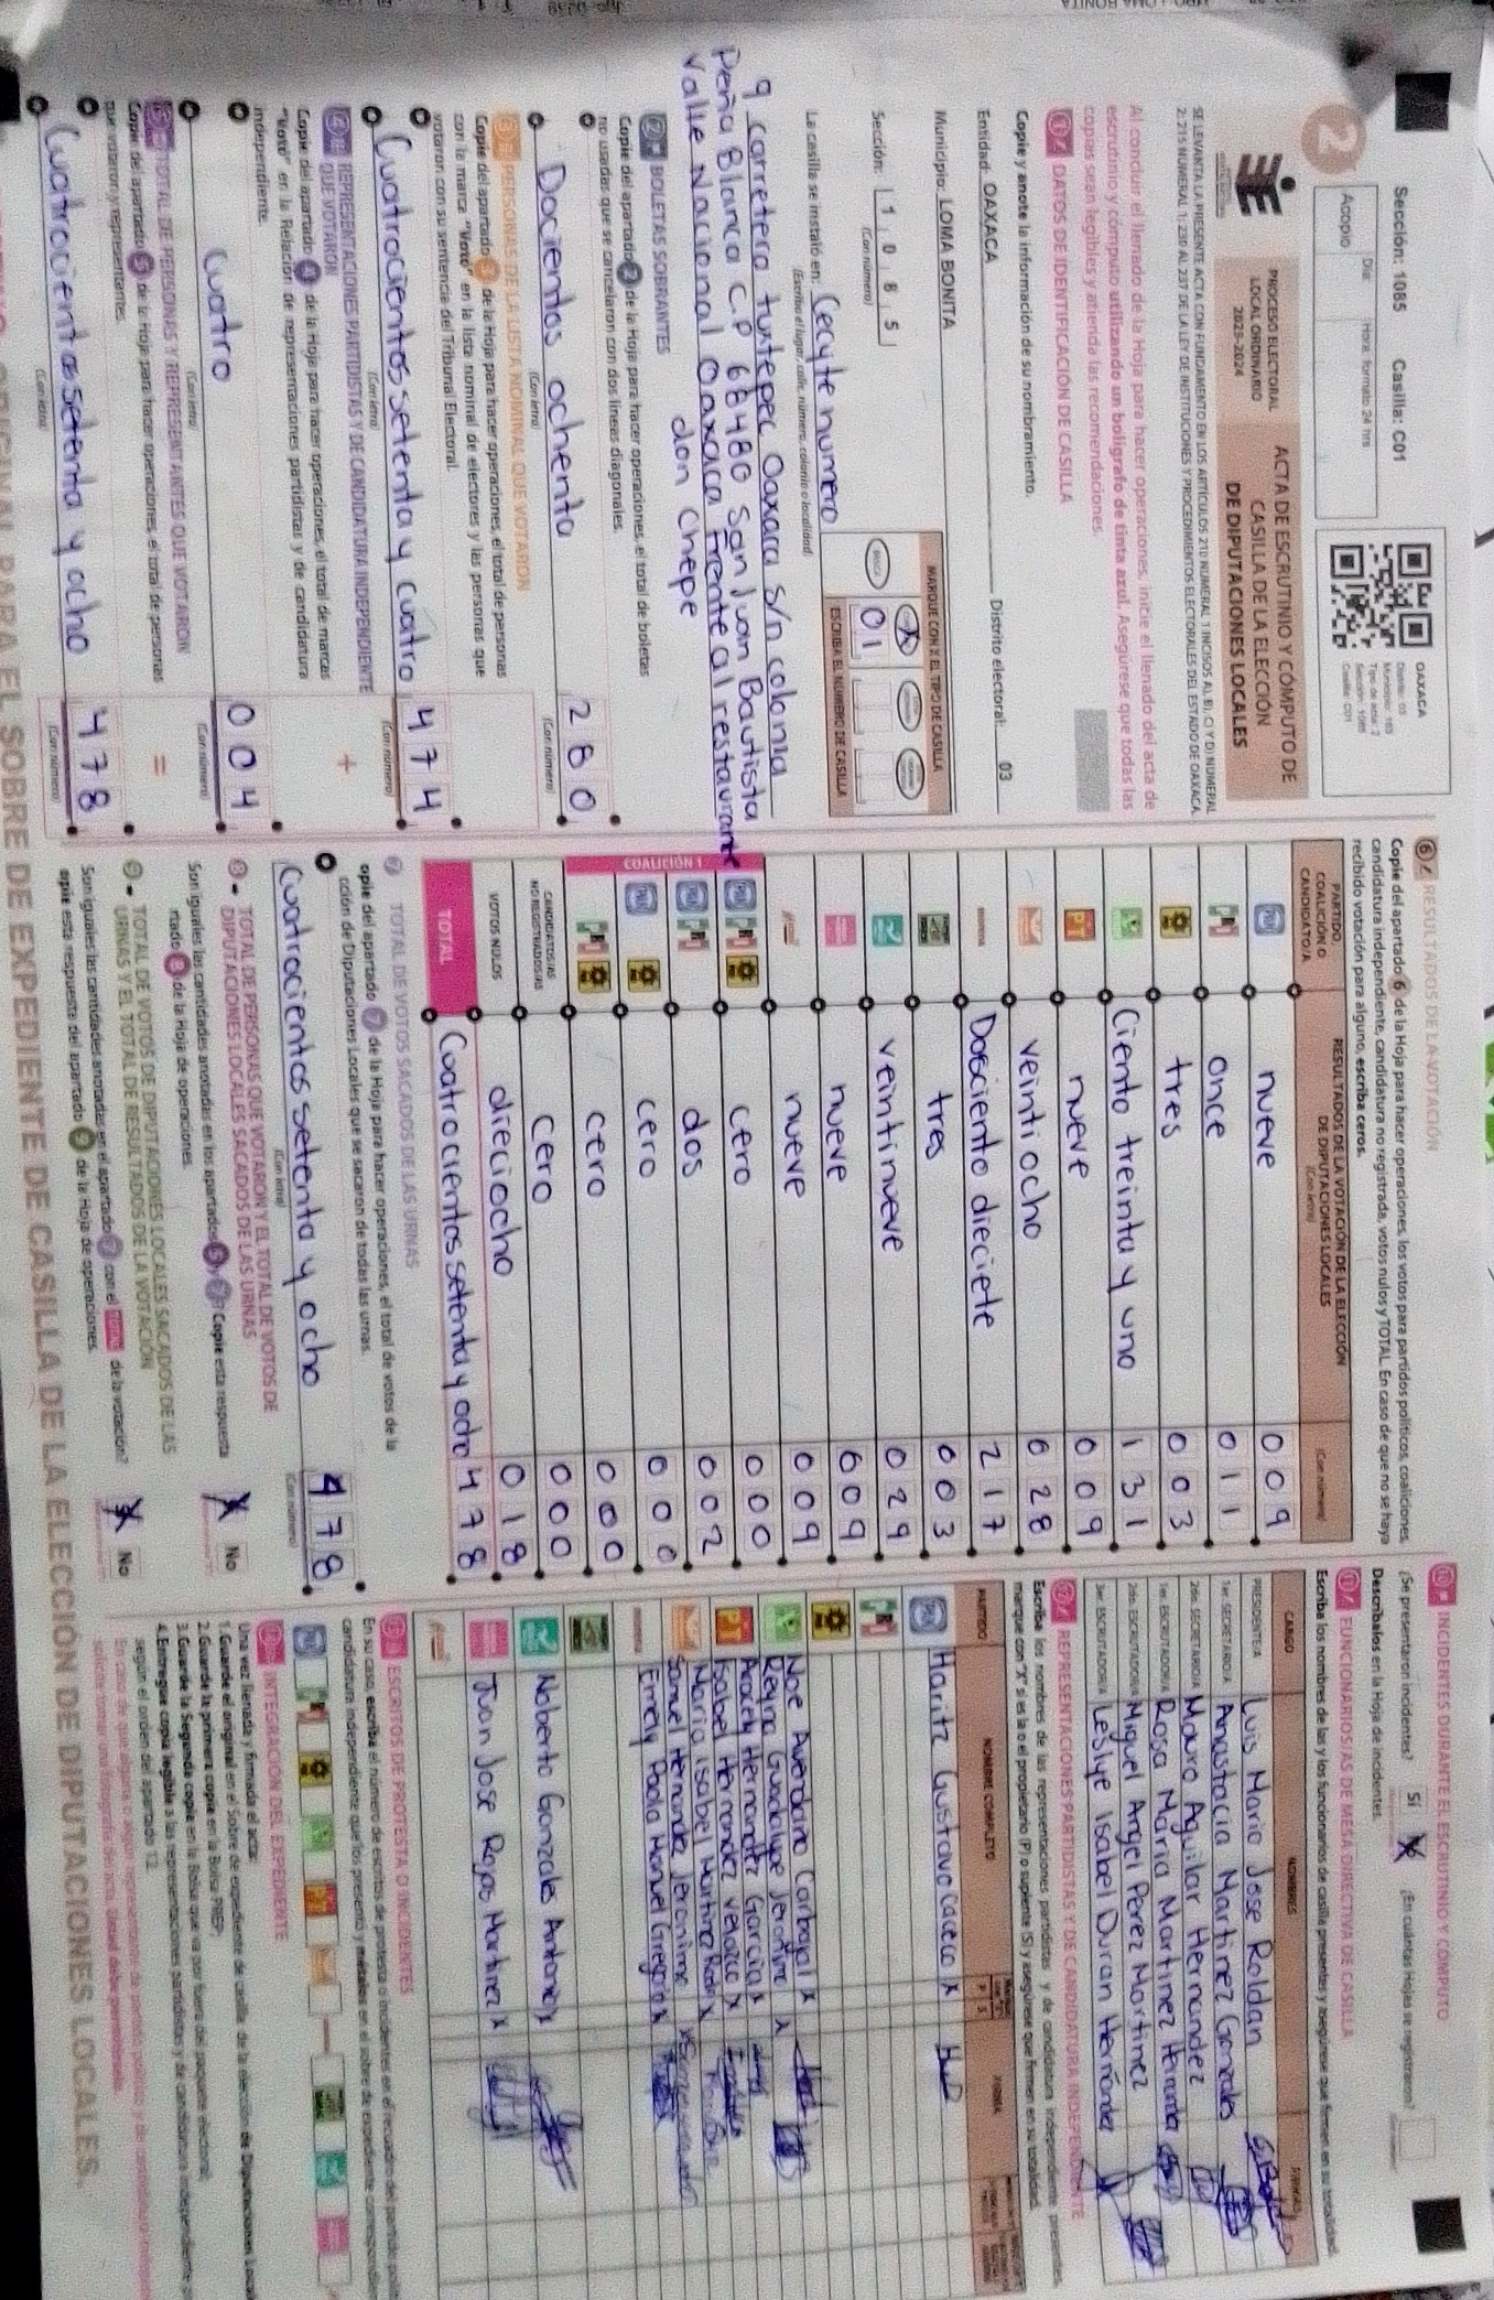 Sección: 1085 Casilla: C01
Día Hora: formato 24 hrs
Acopio
OAXACA
Distrito: 03
Municipio: 165
Tipo de acta: 2
Sección: 1085
Casilla: C01
2
PROCESO ELECTORAL
LOCAL ORDINARIO
2023-2024
ACTA DE ESCRUTINIO Y CÓMPUTO DE
CASILLA DE LA ELECCIÓN
DE DIPUTACIONES LOCALES
SE LEVANTA LA PRESENTE ACTA CON FUNDAMENTO EN LOS ARTÍCULOS 210 NUMERAL 1 INCISOS A), B), C) Y D) NUMERAL
2; 215 NUMERAL 1; 230 AL 237 DE LA LEY DE INSTITUCIONES Y PROCEDIMIENTOS ELECTORALES DEL ESTADO DE OAXACA.
Al concluir el llenado de la Hoja para hacer operaciones, inicie el llenado del acta de
escrutinio y cómputo utilizando un bolígrafo de tinta azul. Asegúrese que todas las
copias sean legibles y atienda las recomendaciones.
1 DATOS DE IDENTIFICACIÓN DE CASILLA
Copie y anote la información de su nombramiento.
Entidad: OAXACA Distrito electoral: 03
Municipio: LOMA BONITA
Sección: 1 0 8 5
(Con número)
MARQUE CON X EL TIPO DE CASILLA
01
ESCRIBA EL NÚMERO DE CASILLA
La casilla se instaló en: Cecyte numero
(Escriba el lugar, calle, número, colonia o localidad)
9 carretera tuxtepec Oaxaca S/n colonia
Peña Blanca C.P 68480 San Juan Bautista
Valle Nacional Oaxaca Frente al restaurante
don Chepe
2 BOLETAS SOBRANTES
Copie del apartado 2 de la Hoja para hacer operaciones, el total de boletas
no usadas que se cancelaron con dos líneas diagonales.
Docientos ochenta 280
(Con letra) (Con número)
3 PERSONAS DE LA LISTA NOMINAL QUE VOTARON
Copie del apartado 3 de la Hoja para hacer operaciones, el total de personas
con la marca "Votó" en la lista nominal de electores y las personas que
votaron con su sentencia del Tribunal Electoral.
Cuatrocientos setenta y cuatro 474
(Con letra) (Con número)
4 REPRESENTACIONES PARTIDISTAS Y DE CANDIDATURA INDEPENDIENTE
QUE VOTARON
+
Copie del apartado 4 de la Hoja para hacer operaciones, el total de marcas
"Votó" en la Relación de representaciones partidistas y de candidatura
independiente.
Cuatro 004
(Con letra) (Con número)
5 TOTAL DE PERSONAS Y REPRESENTANTES QUE VOTARON
=
Copie del apartado 5 de la Hoja para hacer operaciones, el total de personas
que votaron y representantes.
Cuatrocientos setenta y ocho 478
(Con letra) (Con número)
6 RESULTADOS DE LA VOTACIÓN
Copie del apartado 6 de la Hoja para hacer operaciones, los votos para partidos políticos, coaliciones,
candidatura independiente, candidatura no registrada, votos nulos y TOTAL. En caso de que no se haya
recibido votación para alguno, escriba ceros.
PARTIDO, COALICIÓN O CANDIDATO/A
RESULTADOS DE LA VOTACIÓN DE LA ELECCIÓN DE DIPUTACIONES LOCALES
(Con letra) (Con número)
PAN nueve 009
PRI once 011
PRD tres 003
Ciento treinta y uno 131
PT nueve 009
veinti ocho 028
morena Dosciento dieciete 217
tres 003
veintinueve 029
nueve 009
nueve 009
COALICIÓN 1
PAN PRI PRD cero 000
PAN PRI dos 002
PAN PRD cero 000
PRI PRD cero 000
CANDIDATOS/AS NO REGISTRADOS/AS cero 000
VOTOS NULOS dieciocho 018
TOTAL Cuatrocientos setenta y ocho 478
7 TOTAL DE VOTOS SACADOS DE LAS URNAS
Copie del apartado 7 de la Hoja para hacer operaciones, el total de votos de la
elección de Diputaciones Locales que se sacaron de todas las urnas.
Cuatrocientos setenta y ocho 478
(Con letra) (Con número)
8 TOTAL DE PERSONAS QUE VOTARON Y EL TOTAL DE VOTOS DE
DIPUTACIONES LOCALES SACADOS DE LAS URNAS
Son iguales las cantidades anotadas en los apartados 5 y 7? Copie esta respuesta
del apartado 8 de la Hoja de operaciones. X No
9 TOTAL DE VOTOS DE DIPUTACIONES LOCALES SACADOS DE LAS
URNAS Y EL TOTAL DE RESULTADOS DE LA VOTACIÓN
Son iguales las cantidades anotadas en el apartado 7 con el TOTAL de la votación?
Copie esta respuesta del apartado 9 de la Hoja de operaciones. X No
10 INCIDENTES DURANTE EL ESCRUTINIO Y CÓMPUTO
¿Se presentaron incidentes? Sí X ¿En cuántas Hojas se registraron?
Descríbalos en la Hoja de incidentes.
11 FUNCIONARIOS/AS DE MESA DIRECTIVA DE CASILLA
Escriba los nombres de las y los funcionarios de casilla presentes y asegúrese que firmen en su totalidad.
CARGO NOMBRES FIRMAS
PRESIDENTE/A Luis Mario Jose Roldan
1er. SECRETARIO/A Anastacia Martinez Gonzales
2do. SECRETARIO/A Mauro Aguilar Hernandez
1er. ESCRUTADOR/A Rosa Maria Martinez Hernandez
2do. ESCRUTADOR/A Miguel Angel Perez Martinez
3er. ESCRUTADOR/A Leslye Isabel Duran Hernández
12 REPRESENTACIONES PARTIDISTAS Y DE CANDIDATURA INDEPENDIENTE
Escriba los nombres de las representaciones partidistas y de candidatura independiente presentes,
marque con "X" si es la o el propietario (P) o suplente (S) y asegúrese que firmen en su totalidad.
PARTIDO NOMBRE COMPLETO P S FIRMA
PAN Haritz Gustavo Caceco X
PRI
PRD
Noe Avendaño Carbajal X
Reyna Guadalupe Jeronimo X
PT Aracely Hernandez Garcia X
Isabel Hernandez Velazco X
Maria Isabel Martinez X
Samuel Hernandez Jeronimo
morena Emely Paola Manuel Gregorio X
Noberto Gonzales Antonio X
Juan Jose Rojas Martinez X
13 ESCRITOS DE PROTESTA O INCIDENTES
En su caso, escriba el número de escritos de protesta o incidentes en el recuadro del partido
candidatura independiente que los presentó y métalos en el sobre de expediente
INTEGRACIÓN DEL EXPEDIENTE
Una vez llenada y firmada el acta:
1. Guarde el original en el Sobre de expediente de casilla de la elección de Diputaciones
2. Guarde la primera copia en la Bolsa PREP.
3. Guarde la Segunda copia en la Bolsa que va por fuera del paquete electoral.
4. Entregue copia legible a las representaciones partidistas y de candidatura independiente
según el orden del apartado 12.
ORIGINAL PARA EL SOBRE DE EXPEDIENTE DE CASILLA DE LA ELECCIÓN DE DIPUTACIONES LOCALES.